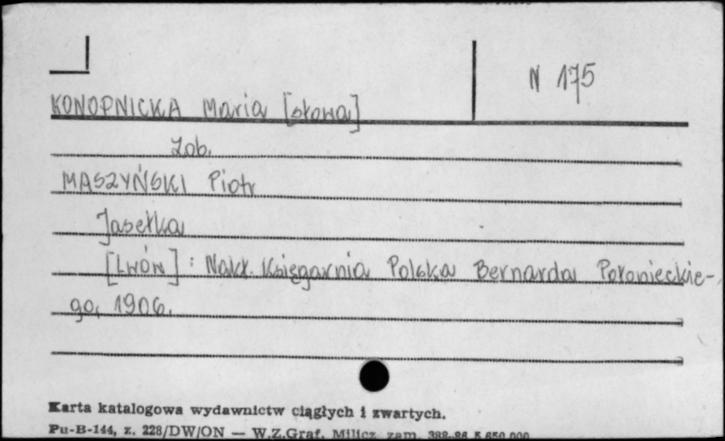 N 175
KONOPNICKA Maria [słowa]
zob.
MASZYŃSKI Piotr
Jasełka
[LWÓW] : Nakł. Księgarnia Polska Bernarda Połonieckie-
go, 1906.
Karta katalogowa wydawnictw ciągłych i zwartych.
Pu-B-144, z. 228/DW/ON — W.Z.Graf. Milicz zam. 388-86 5.650.000